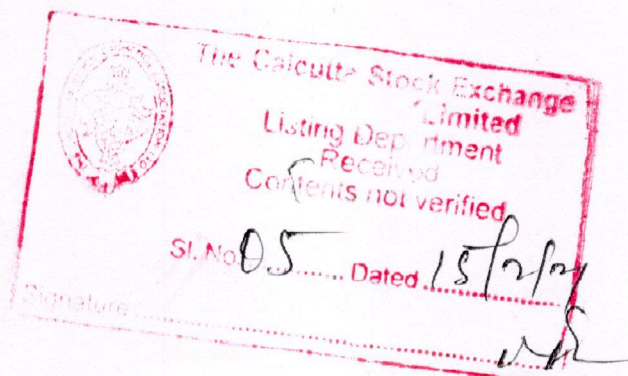 The Calcutta Stock Exchange
Limited
Listing Department
Received
Contents not verified
Sl. No. 05 ........ Dated 15/2/21
Signature